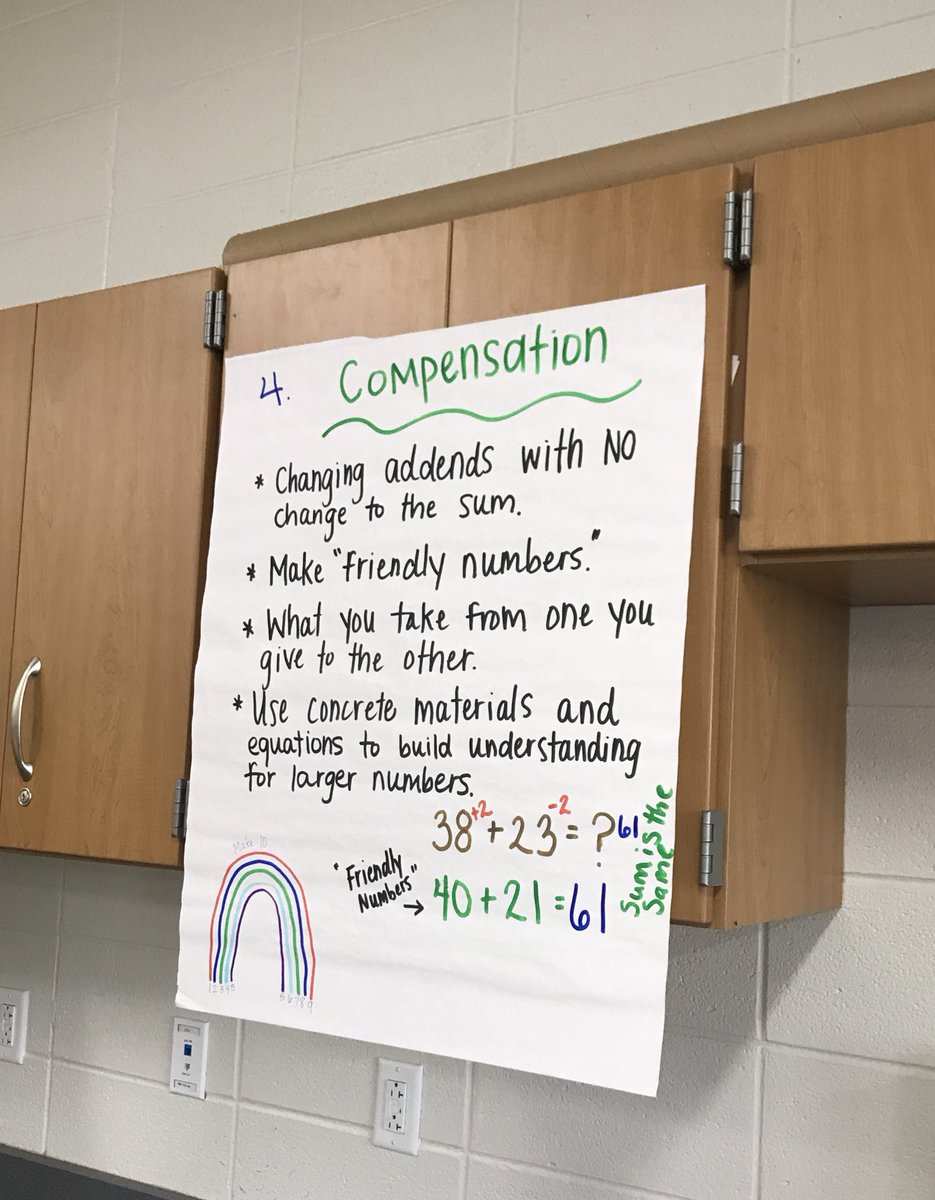 4. Compensation
* Changing addends with NO
change to the sum.
* Make "friendly numbers."
* What you take from one you
give to the other.
* Use concrete materials and
equations to build understanding
for larger numbers.
38+2 + 23-2 = ? 61
"Friendly
Numbers" → 40 + 21 = 61
Sum is the
same
Make 10
1 2 3 4 5 5 6 7 8 9